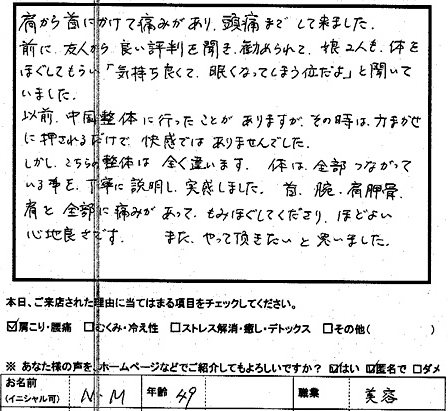 肩から首にかけて痛みがあり、頭痛までして来ました。
前に、友人から良い評判を聞き、勧められて、娘2人も、体を
ほぐしてもらい「気持ち良くて、眠くなってしまう位だよ」と聞いて
いました。
以前、中国整体に行ったことがありますが、その時は、力まかせ
に押されるだけで、快感ではありませんでした。
しかし、こちらの整体は全く違います。体は、全部つながって
いる事を、丁寧に説明し、実感しました。首、腕、肩胛骨、
肩と全部に痛みがあって、もみほぐしてくださり、ほどよい
心地良さです。また、やって頂きたいと思いました。
本日、ご来店された理由に当てはまる項目をチェックしてください。
☑肩こり・腰痛 □むくみ・冷え性 □ストレス解消・癒し・デトックス □その他( )
※ あなた様の声を、ホームページなどでご紹介してもよろしいですか? ☑はい ☑匿名で □ダメ
お名前 (イニシャル可) N・M 年齢 49 職業 美容